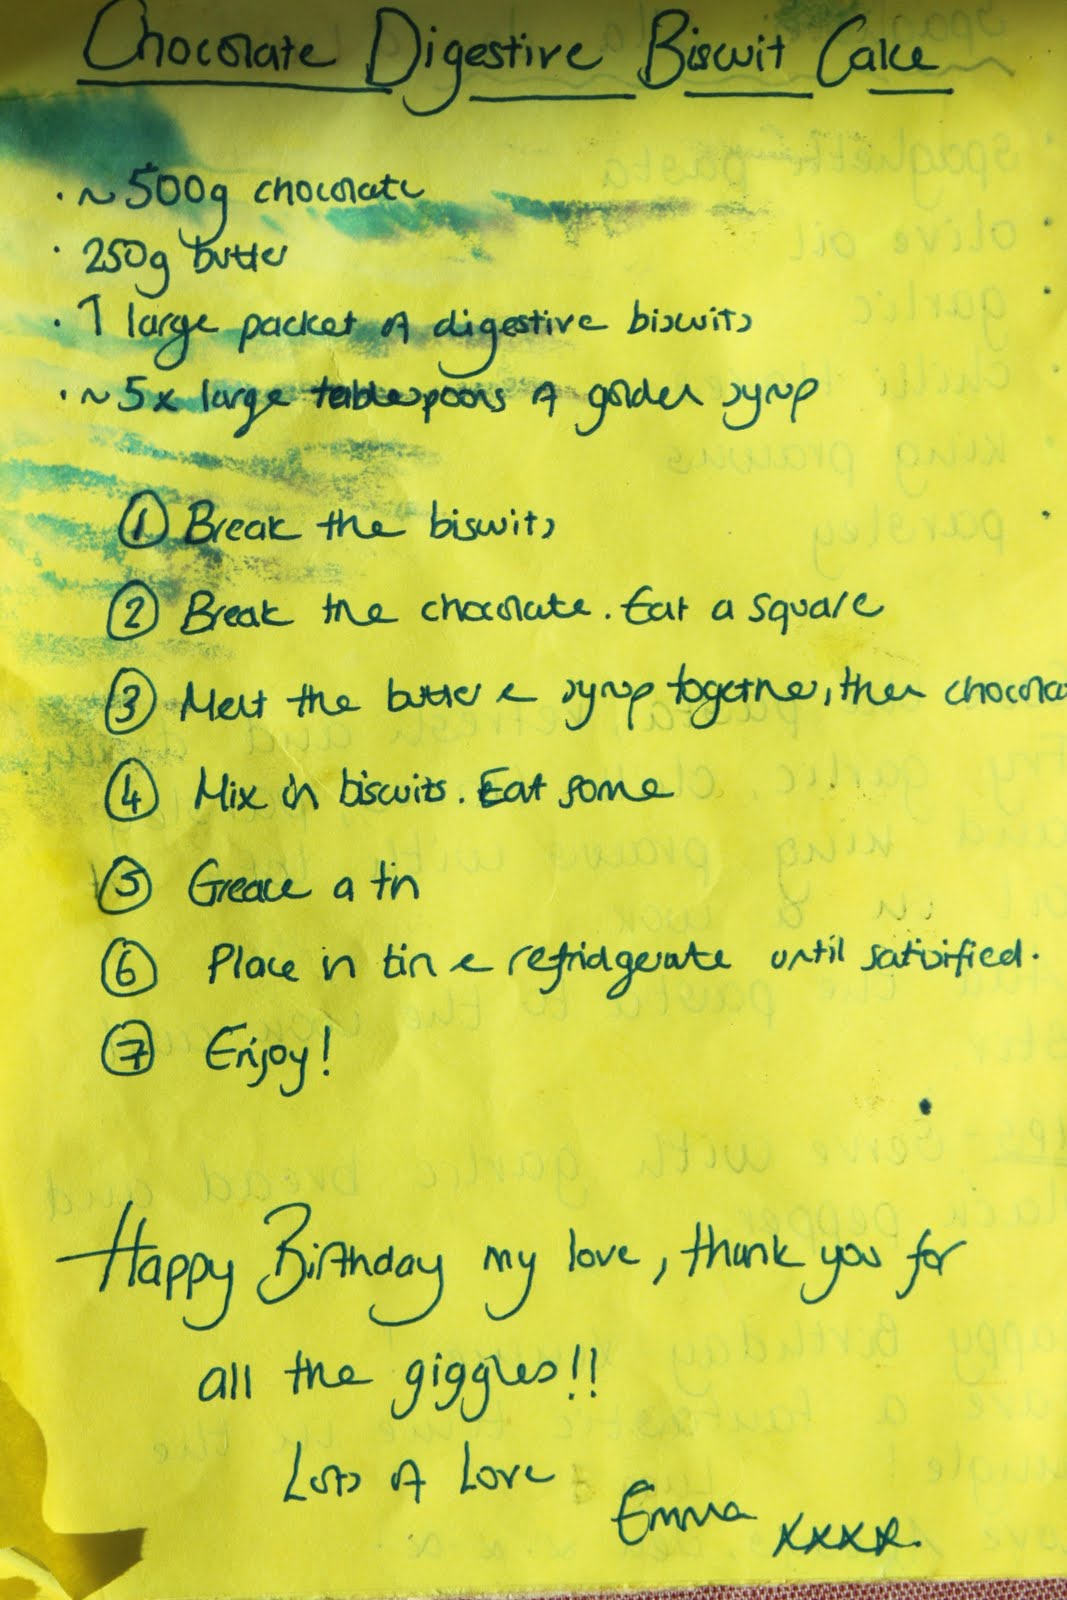 Chocolate Digestive Biscuit Cake
· ~500g chocolate
· 250g butter
· 1 large packet of digestive biscuits
· ~5x large tablespoons of golden syrup
① Break the biscuits
② Break the chocolate. Eat a square
③ Melt the butter & syrup together, then chocola
④ Mix in biscuits. Eat some
⑤ Greace a tin
⑥ Place in tin & refridgerate until satisified.
⑦ Enjoy!
Happy Birthday my love, thank you for
all the giggles!!
Lots of Love
Emma xxxx.